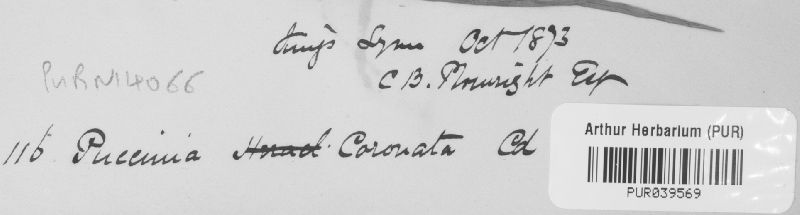 King's Lynn Oct 1873
C B. Plowright Esq
PURN14066
116 Puccinia Coronata Cd
Arthur Herbarium (PUR)
PUR039569